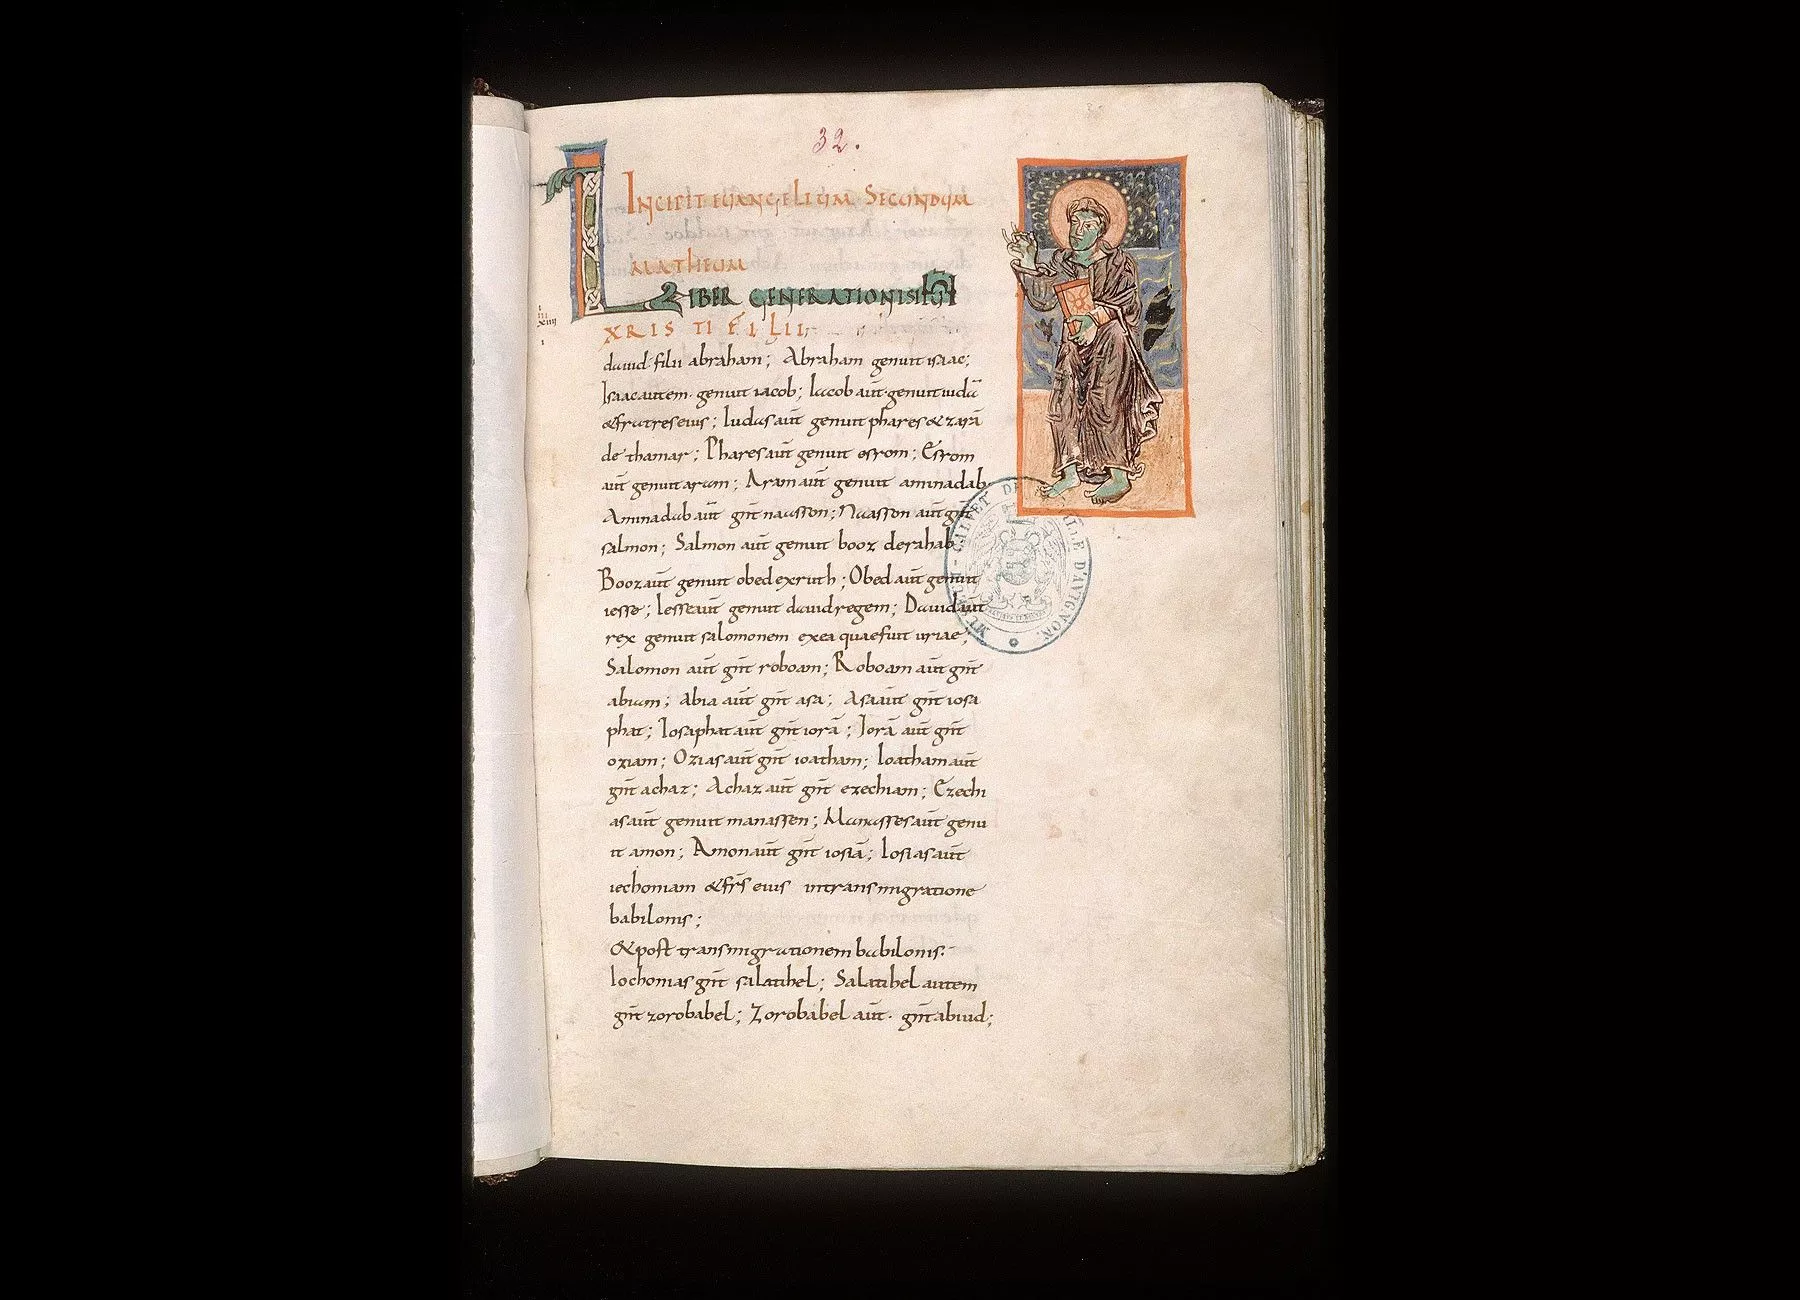 32.
INCIPIT EUANGELIUM SECUNDUM
MATHEUM
LIBER GENERATIONIS IHU
XRISTI FILII
dauid filii abraham; Abraham genuit isaac;
Isaac autem genuit iacob; Iacob aūt genuit iudā
&fratres eius; Iudas aūt genuit phares & zarā
de thamar; Phares aūt genuit esrom; Esrom
aūt genuit aram; Aram aūt genuit aminadab
Aminadab aūt gn̄t naasson; Naasson aūt gn̄t
salmon; Salmon aūt genuit booz de rahab
Booz aūt genuit obed ex ruth; Obed aūt genuit
iesse; Iesse aūt genuit dauid regem; Dauid aūt
rex genuit salomonem ex ea quae fuit uriae;
Salomon aūt gn̄t roboam; Roboam aūt gn̄t
abiam; abia aūt gn̄t asa; Asa aūt gn̄t iosa
phat; Iosaphat aūt gn̄t iorā; Iorā aūt gn̄t
oziam; Ozias aūt gn̄t ioatham; Ioatham aūt
gn̄t achaz; Achaz aūt gn̄t ezechiam; Ezechi
as aūt genuit manassen; Manasses aūt genu
it amon; Amon aūt gn̄t iosiā; Iosias aūt
iechoniam & fr̄s eius in transmigratione
babilonis;
& post transmigrationem babilonis.
Iechonias gn̄t salatihel; Salatihel autem
gn̄t zorobabel; Zorobabel aūt. gn̄t abiud;
MUSEUM CALVET DE VILLE D'AVIGNON.